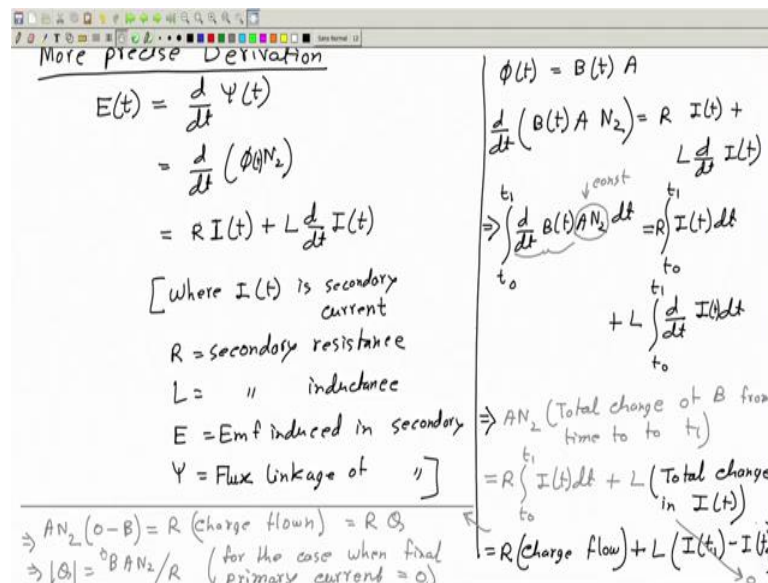 More precise Derivation
E(t) = d/dt Ψ(t)
= d/dt (ϕ(t)N₂)
= R I(t) + L d/dt I(t)
[where I(t) is secondary
current
R = secondary resistance
L = " inductance
E = Emf induced in secondary
Ψ = Flux linkage of " ]
⇒ AN₂(0-B) = R (charge flown) = R Q
⇒ |Q| = BAN₂/R (for the case when final
primary current = 0)
ϕ(t) = B(t) A
d/dt (B(t) A N₂) = R I(t) +
L d/dt I(t)
const
⇒ ∫_{t₀}^{t₁} d/dt B(t) AN₂ dt = R ∫_{t₀}^{t₁} I(t) dt
+ L ∫_{t₀}^{t₁} d/dt I(t) dt
⇒ AN₂ (Total change of B from
time to to t₁)
= R ∫_{t₀}^{t₁} I(t) dt + L (Total change
in I(t))
= R (charge flow) + L (I(t₁) - I(t